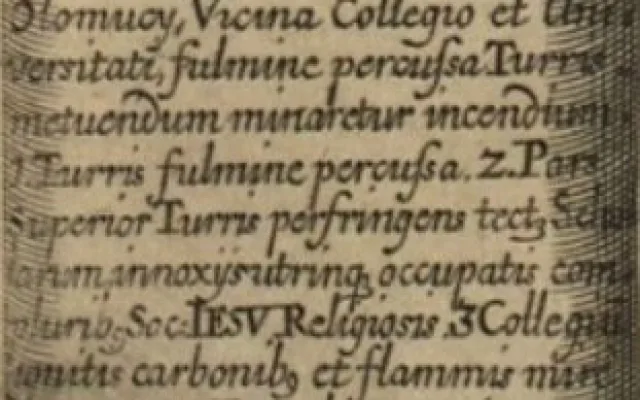 Olomucij, Vicina Collegio et Uni
versitati, fulmine percussa Turris
metuendum minaretur incendium
1. Turris fulmine percussa. 2. Pars
Superior Turris perfringens tectꝫ
innoxijs utrinqꝫ occupatis com
pluribꝫ Soc: IESV Religiosis. 3 Collegiū
carbonibꝫ et flammis